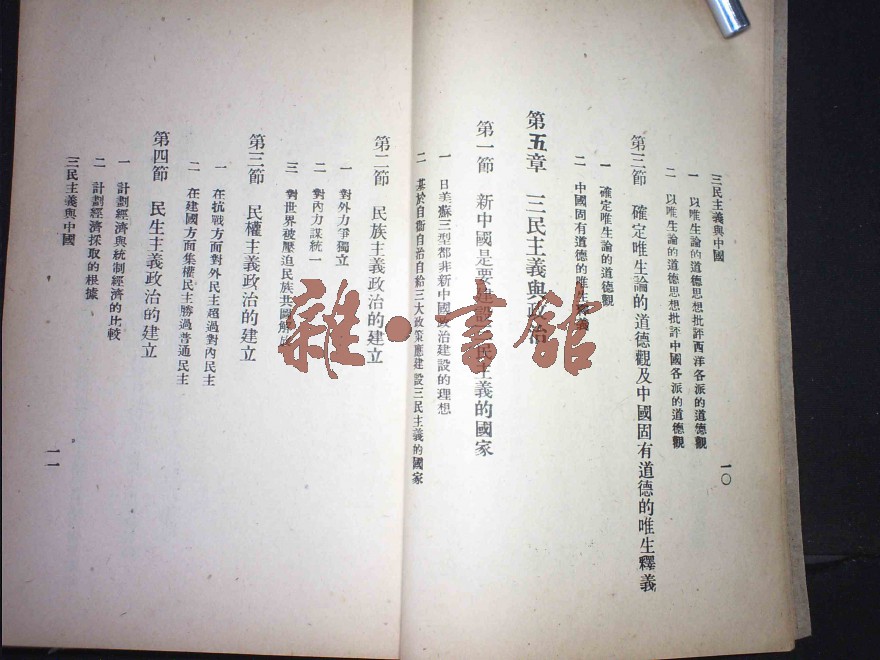 三民主義與中國
一 以唯生論的道德思想批評西洋各派的道德觀
二 以唯生論的道德思想批評中國各派的道德觀
第三節 確定唯生論的道德觀及中國固有道德的唯生釋義
一 確定唯生論的道德觀
二 中國固有道德的唯生釋義
第五章 三民主義與政治
第一節 新中國是要建設三民主義的國家
一 日美蘇三型都非新中國政治建設的理想
二 基於自衛自治自給三大政策應建設三民主義的國家
一〇
第二節 民族主義政治的建立
一 對外力爭獨立
二 對內力謀統一
三 對世界被壓迫民族共圖解放
第三節 民權主義政治的建立
一 在抗戰方面對外民主超過對內民主
二 在建國方面集權民主勝過普通民主
第四節 民生主義政治的建立
一 計劃經濟與統制經濟的比較
二 計劃經濟採取的根據
三民主義與中國
一一
雜·書館